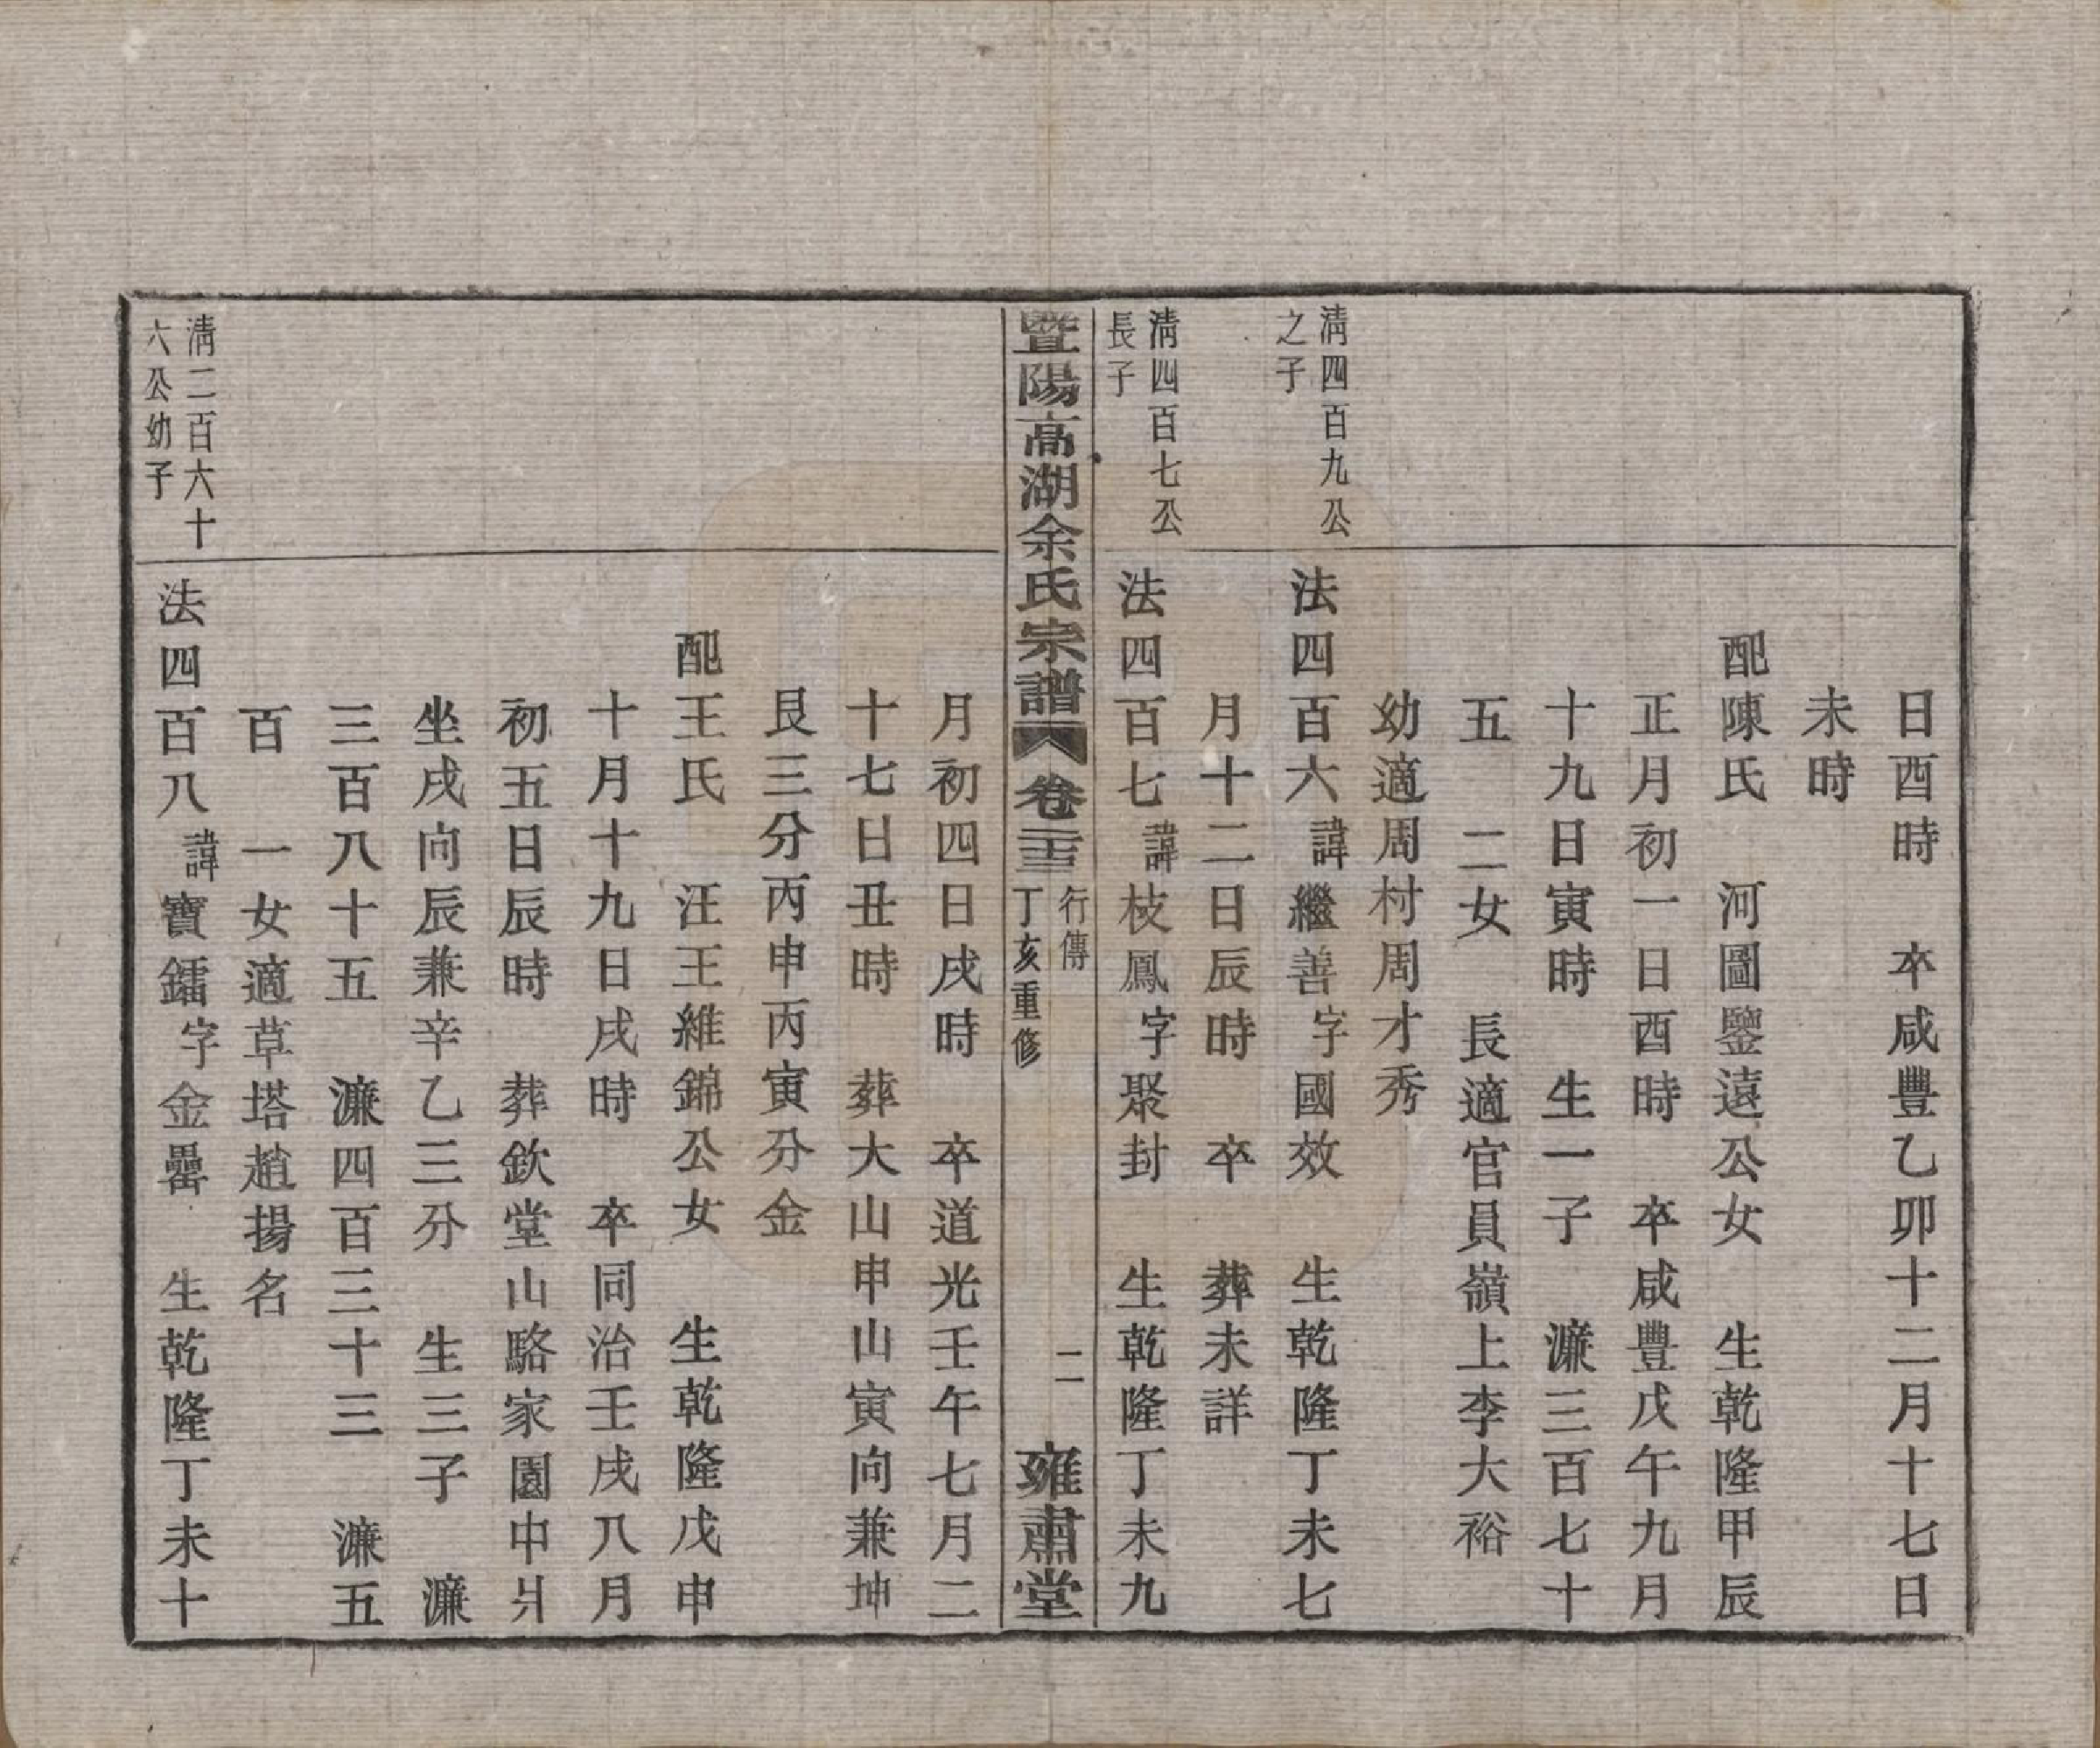 日酉時　卒咸豐乙卯十二月十七日
未時
配陳氏　河圖鑒遠公女　生乾隆甲辰
正月初一日酉時　卒咸豐戊午九月
十九日寅時　生一子　濂三百七十
五　二女　長適官員嶺上李大裕
幼適周村周才秀
清四百九公
之子
法四百六諱繼善字國效　生乾隆丁未七
月十二日辰時　卒　葬未詳
清四百七公
長子
法四百七諱枝鳳字聚封　生乾隆丁未九
暨陽高湖余氏宗譜
卷二十三
行傳
丁亥重修
二
雍肅堂
月初四日戌時　卒道光壬午七月二
十七日丑時　葬大山申山寅向兼坤
艮三分丙申丙寅分金
配王氏　汪王維錦公女　生乾隆戊申
十月十九日戌時　卒同治壬戌八月
初五日辰時　葬欽堂山駱家園中爿
坐戌向辰兼辛乙三分　生三子　濂
三百八十五　濂四百三十三　濂五
百　一女適草塔趙揚名
清二百六十
六公幼子
法四百八諱寶鐳字金罍　生乾隆丁未十